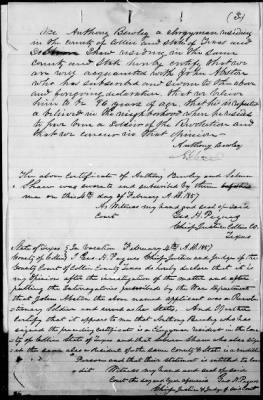 (3)
We Anthony Bewley a clergyman residing
in the county of Collin and state of Texas and
Solomon Shaw residing in the same
county and state hereby certify that we
are well acquainted with John Abston
who has subscribed and sworn to the above
and foregoing declaration, that we believe
him to be 96 years of age, that he is reputed
& believed in the neighborhood where he resides
to have been a soldier of the Revolution and
that we concur in that opinion
Anthony Bewley
The above certificate of Anthony Bewley and Solomon
Shaw was sworn to and subscribed by them before
me on this 4th day of February A.D. 1857
In Witness my hand and seal of said
Court Geo. H. Pegues
Chief Justice Collin Co.
Texas
State of Texas } In Vacation February 4th A.D. 1857
County of Collin } I Geo. H. Pegues Chief Justice and Judge of the
County Court of Collin County Texas do hereby declare that it is
my opinion after the investigation of the matter and after
putting the Interrogatories prescribed by the War Department
that John Abston the above named applicant was a Revolu-
tionary Soldier and served as he states. And I further
certify that it appears to me that Anthony Bewley who has
signed the preceding certificate is a Clergyman resident in the Coun-
ty of Collin State of Texas and that Solomon Shaw who also sign-
ed the same is also a resident of the same County & State is a credible
Person and that their statement is entitled to cre-
dit Witness my hand and seal of said
Court the day and year aforesaid Geo. H. Pegues
Chief Justice of Collin Co.